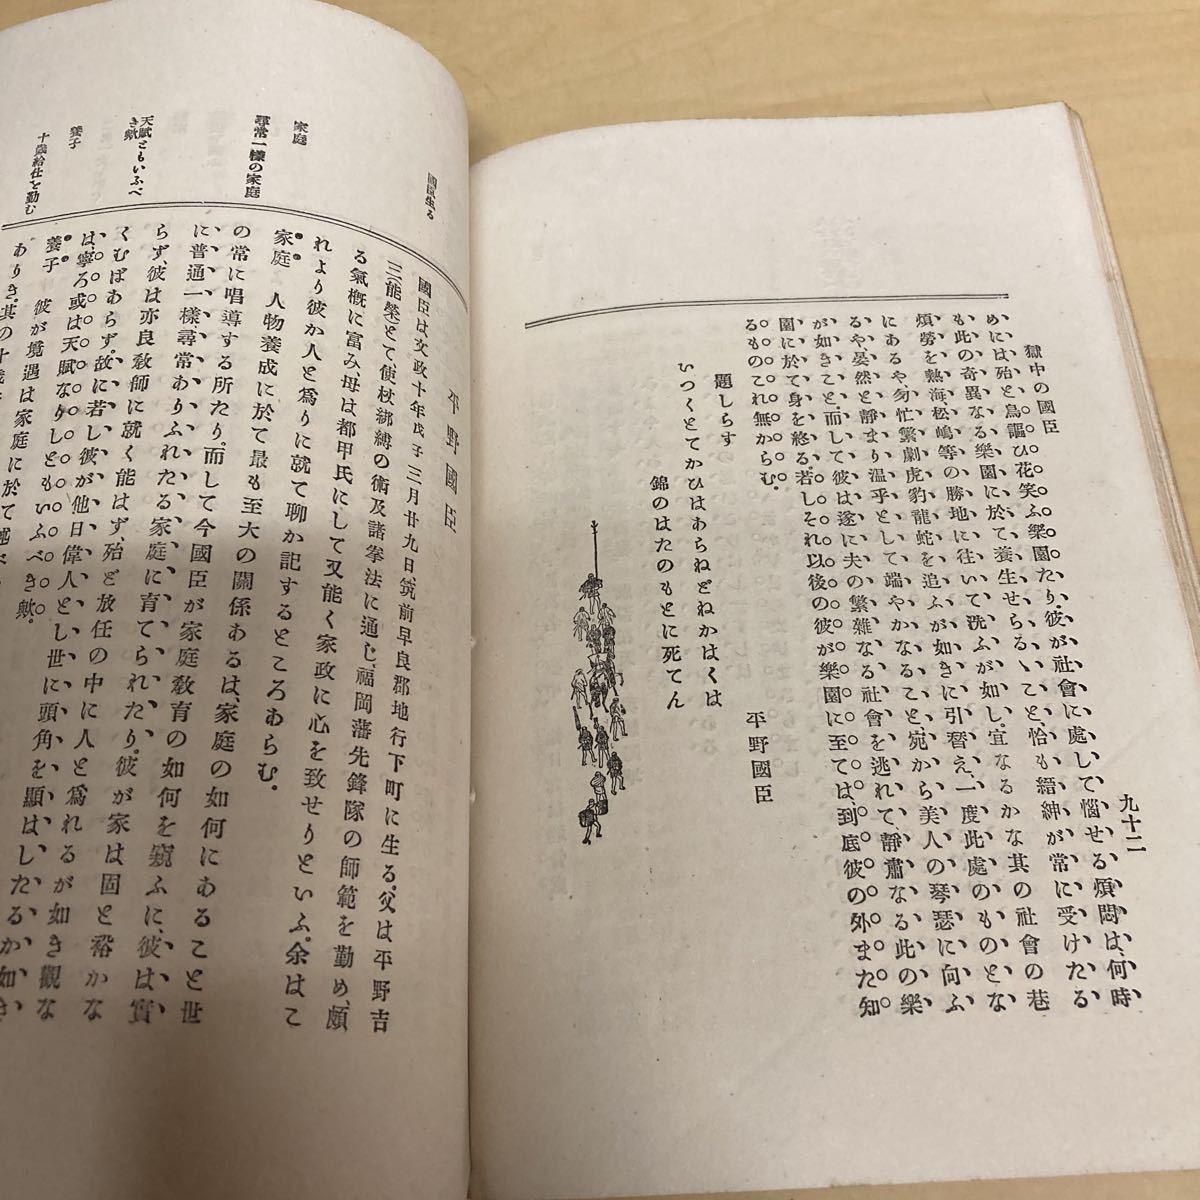 九十二
獄中の國臣
めには殆と、鳥謳ひ花笑ふ樂園たり、彼が社會に處して惱せる煩悶は、何時
も此の奇異なる樂園に於て、養生せらるゝこと、恰も縉紳が常に受けたる
煩勞を、熱海、松嶋等の勝地に往いて洗ふが如し。宜なるかな其の社會の巷
にあるや匆忙繁劇虎豹龍蛇を追ふが如きに引替え、一度此處のものとな
るや晏然と靜まり温乎として端やかなること宛から美人の琴瑟に向ふ
が如きこと、而して彼は遂に夫の繁雜なる社會を逃れて、靜肅なる此の樂
園に於て身を終る。若しそれ以後の彼が樂園に至ては、到底彼の外また知
るものこれ無からむ。
題しらす
平野國臣
いつくとてかひはあらねどねかはくは
錦のはたのもとに死てん
平野國臣
國臣生る
國臣は文政十年戊子三月廿九日筑前早良郡地行下町に生る、父は平野吉
三(能榮)とて、使杖綁縛の術及諸拳法に通じ、福岡藩先鋒隊の師範を勤め、頗
る氣槪に富み、母は都甲氏にして又能く家政に心を致せりといふ。余はこ
れより彼か人と爲りに就て聊か記するところあらむ。
家庭
家庭 人物養成に於て最も至大の關係あるは、家庭の如何にあること世
の常に唱導する所たり。而して今國臣が家庭敎育の如何を窺ふに、彼は實
尋常一樣の家庭
に、普通一樣尋常ありふれたる家庭に育てられたり。彼が家は固と裕かな
らず、彼は亦良敎師に就く能はず、殆ど放任の中に人と爲れるが如き觀な
くむばあらず。故に若し彼が他日偉人とし世に頭角を顯はしたるか如き
天賦ともいふべき歟
は、寧ろ或は天賦なりしともいふべき歟。
養子
養子 彼が境遇は家庭に於て
十歳給仕を勤む
ありき。其の十歳